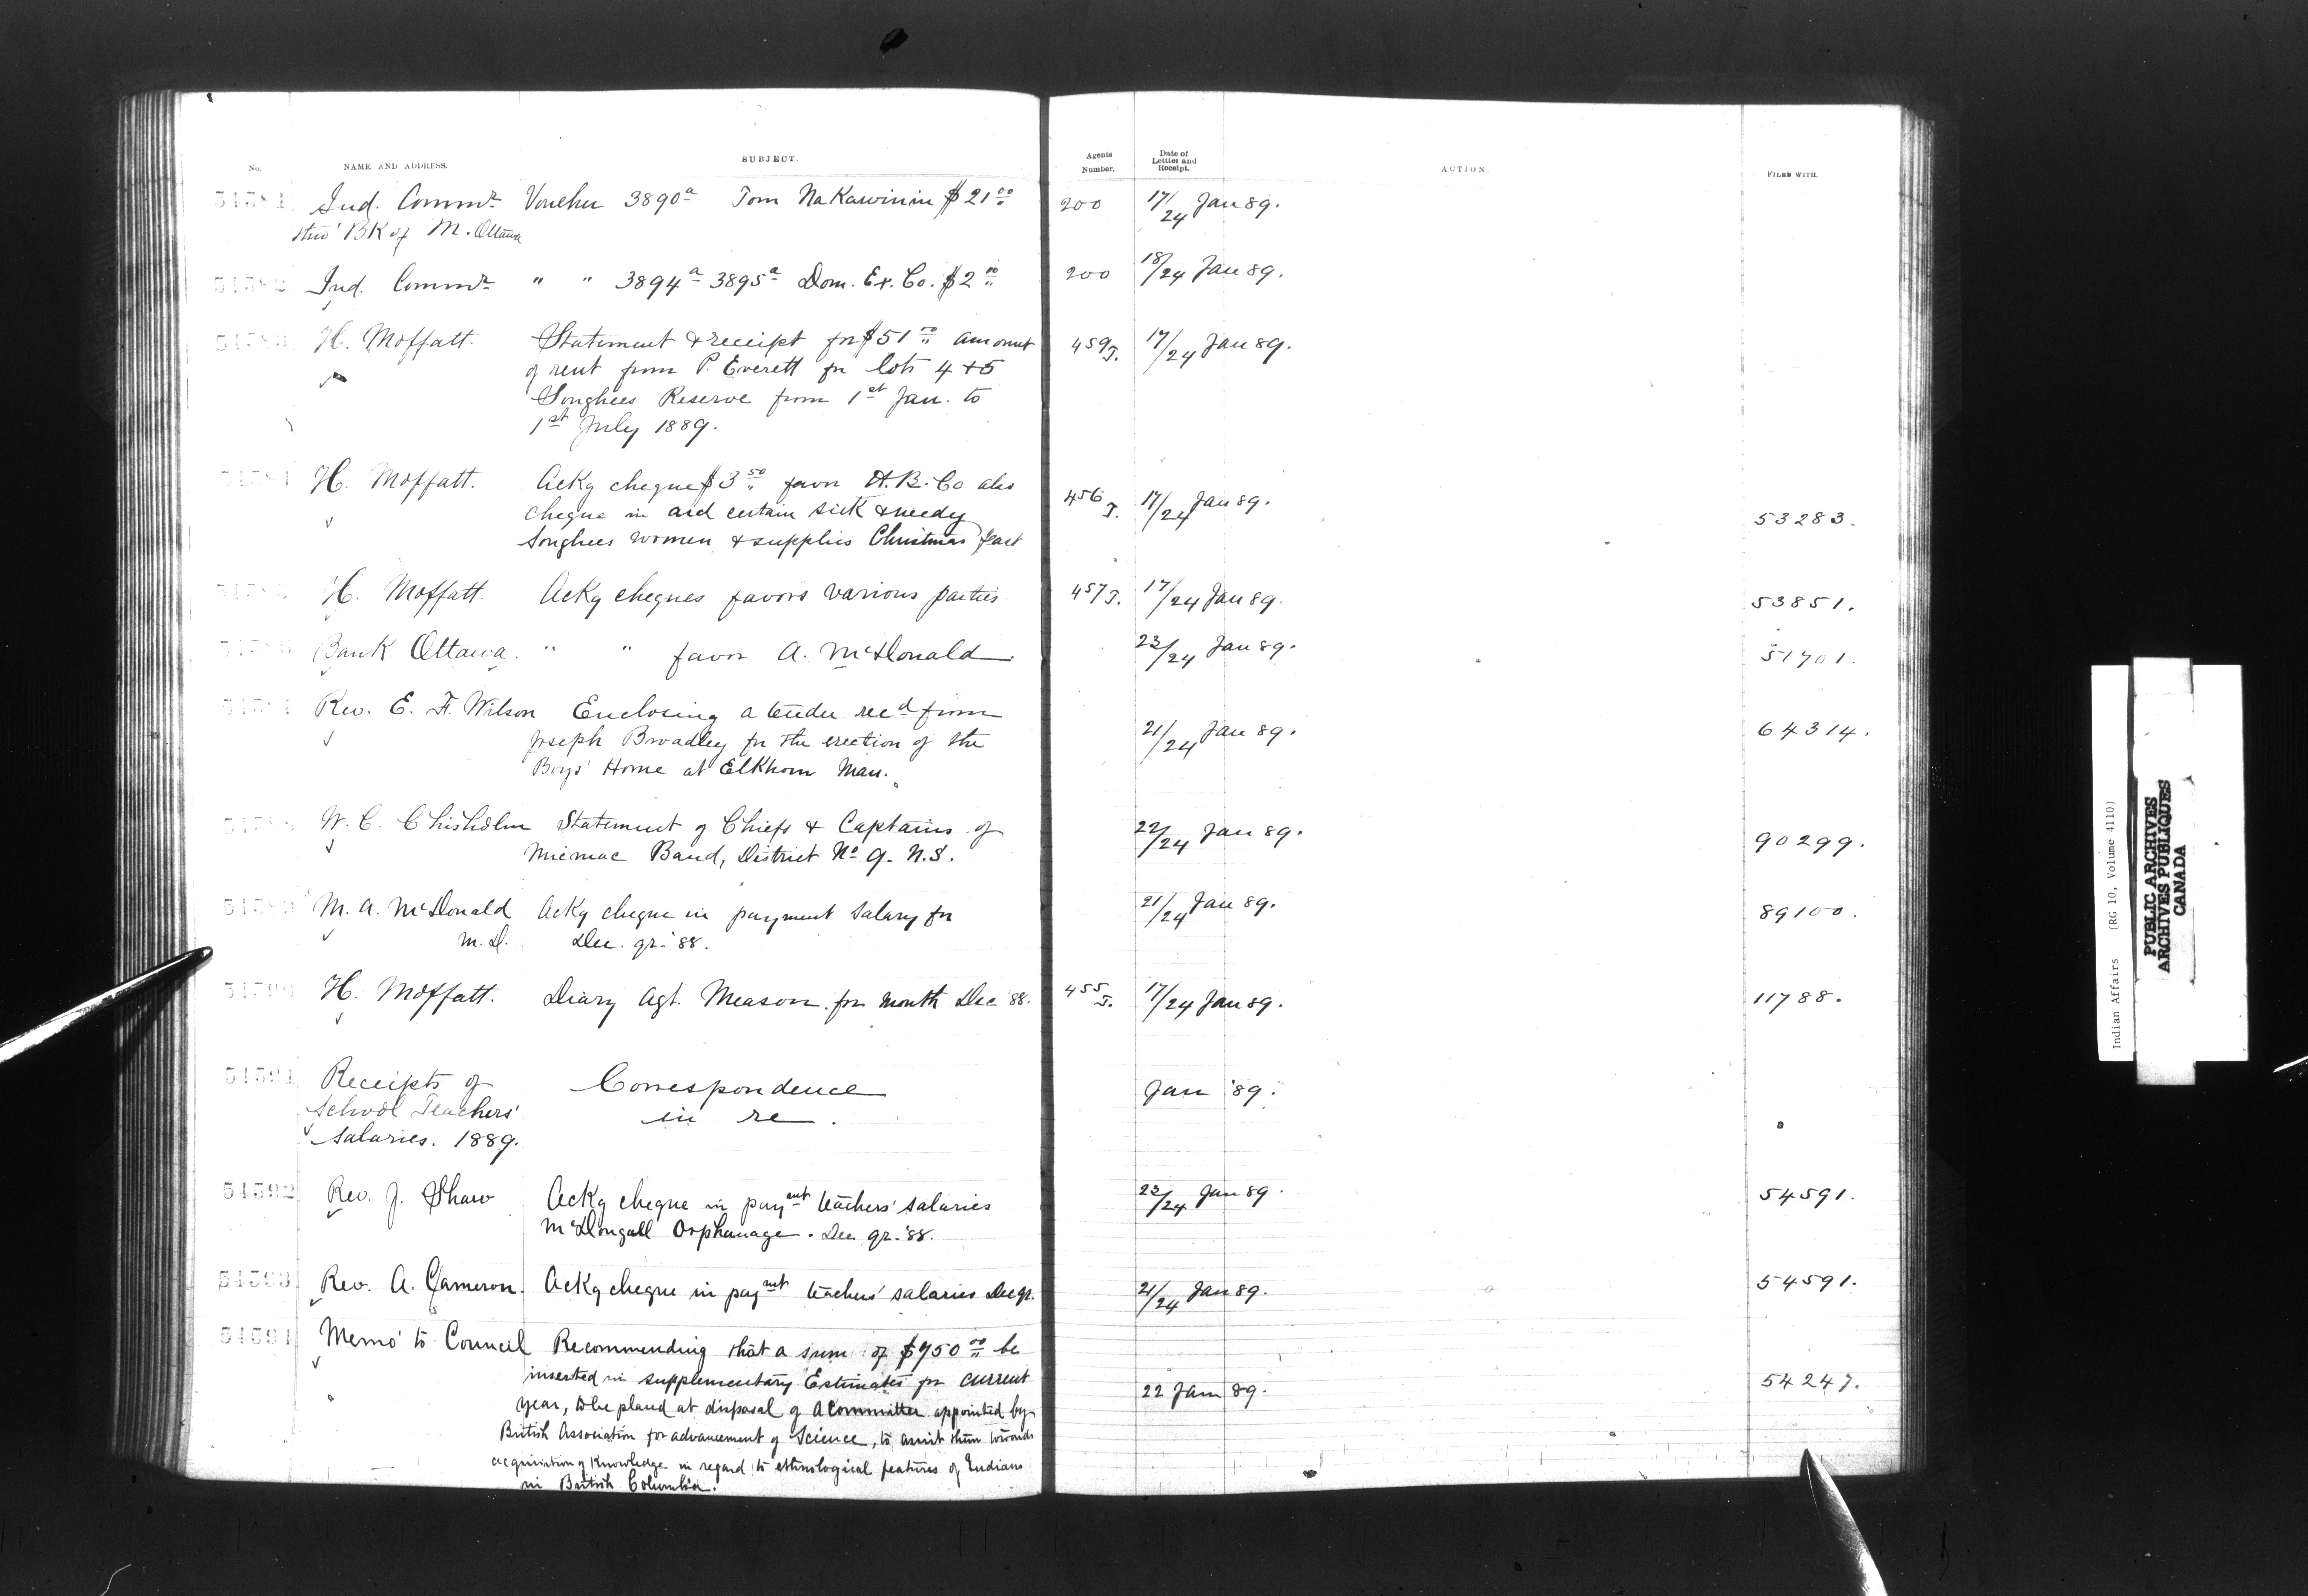 No. NAME AND ADDRESS. SUBJECT. Agents Number. Date of Letter and Receipt. ACTION. FILED WITH.
54581 Ind. Commr Voucher 3890a Tom NaKawinin $21 00 200 17/24 Jan 89.
thro' BK of M. Ottawa
54582 Ind. Commr " " 3894a 3895a Dom. Ex. Co. $2 00 200 18/24 Jan 89.
54583 H. Moffatt. Statement & receipt for $51 00 amount 459 J. 17/24 Jan 89.
of rent from P. Everett for lots 4 + 5
Songhees Reserve from 1st Jan. to
1st July 1889.
54584 H. Moffatt. Ackg cheque $3 50 favor H.B. Co also 456 J. 17/24 Jan 89. 53283.
cheque in aid certain sick & needy
Songhees women & supplies Christmas feast
54585 H. Moffatt. Ackg cheques favors various parties. 457 J. 17/24 Jan 89. 53851.
54586 Bank Ottawa. " " favor A. McDonald. 23/24 Jan 89. 51701.
54587 Rev. E. F. Wilson Enclosing a tender recd from 21/24 Jan 89. 64314.
Joseph Broadley for the erection of the
Boys' Home at Elkhorn Man.
54588 W. C. Chisholm Statement of Chiefs & Captains of 22/24 Jan 89. 90299.
Micmac Band, District No 9. N.S.
54589 M. A. McDonald Ackg cheque in payment salary for 21/24 Jan 89. 89100.
M.D. Dec. qr. '88.
54590 H. Moffatt. Diary Agt. Meason for month Dec '88. 455 J. 17/24 Jan 89. 11788.
54591 Receipts of Correspondence Jan '89.
School Teachers' in re.
Salaries. 1889.
54592 Rev. J. Shaw Ackg cheque in payment teachers' salaries 23/24 Jan 89. 54591.
McDougall Orphanage. Dec qr. '88.
54593 Rev. A. Cameron. Ackg cheque in paymnt teachers' salaries Dec qr. 21/24 Jan 89. 54591.
54594 Memo' to Council Recommending that a sum of $750 00 be
inserted in supplementary Estimates for current 22 Jan 89. 54247.
year, to be placed at disposal of a Committee appointed by
British Association for advancement of Science, to assist them towards
acquisition of Knowledge in regard to ethnological features of Indians
in British Columbia.
Indian Affairs (RG 10, Volume 4110)
PUBLIC ARCHIVES
ARCHIVES PUBLIQUES
CANADA